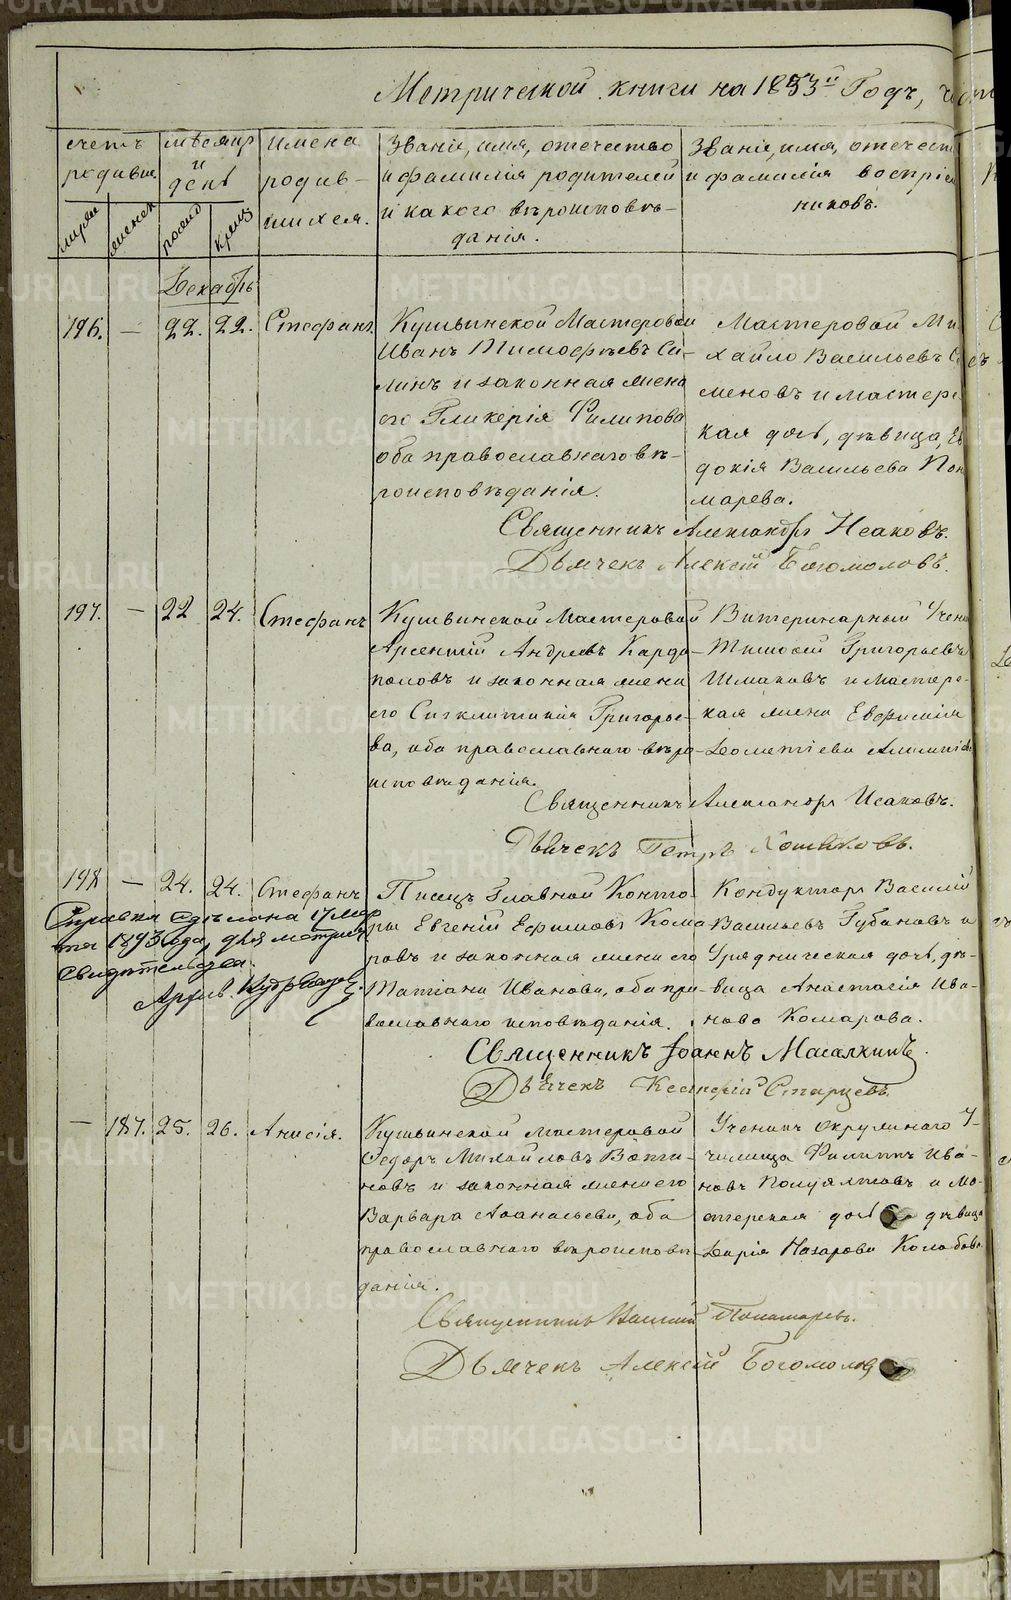 Метрической книги на 1853й Годъ,
счетъ родивш.
мѣсяцъ и день
имена родив-
шихся.
Званіе, имя, отечество
и фамилія родителей
и какого вѣроисповѣ-
данія.
Званіе, имя, отечест
и фамилія воспріем
никовъ.
Декабрь
196. — 22. 22. Стефанъ
Кушвинской Мастеровой
Иванъ Тимофѣевъ Си-
линъ и законная жена
его Гликерія Филипова
оба православнаго вѣ-
роисповѣданія.
Мастеровой Ми
хайло Васильевъ Се
меновъ и мастерс
кая дочь, дѣвица, Ев
докія Васильева Пон
марева.
Священникъ Александръ Исаковъ.
Дьячекъ Алексій Богомоловъ.
197. — 22 24. Стефанъ
Кушвинской Мастеровой
Арсентій Андреевъ Карда-
половъ и законная жена
его Сигклитикія Григорье-
ва, оба православнаго вѣро-
исповѣданія.
Витеринарный Учени
Тимофей Григорьевъ
Шмаковъ и Мастерс-
кая жена Евфимія
Дометіева
Священникъ Александръ Исаковъ.
Дьячекъ Петръ
198 — 24. 24. Стефанъ
Писецъ Главной Конто-
ры Евгеній Ефимовъ Кома
ровъ и законная жена его
Татіана Иванова, оба пра-
вославнаго исповѣданія.
Кондукторъ Василій
Васильевъ Губановъ и
Урядническая дочь, дѣ-
вица Анастасія Ива-
нова Комарова.
Справка сдѣлана 17 Мар
та 1893 года, для метрич.
свидѣтельства.
Священникъ Іоаннъ Масалкинъ.
Дьячекъ Старцевъ.
— 187. 25. 26. Анисія.
Кушвинской мастеровой
Федоръ Михайловъ Вотги-
новъ и законная жена его
Варвара Афанасьева, оба
православнаго вѣроисповѣ-
данія.
Ученикъ Окружнаго У-
чилища Филиппъ Ива-
новъ Полуяхтовъ и Ма-
стерская дочь дѣвица
Дарія Назарова Колобова
Священникъ Василій Пономаревъ.
Дьячекъ Алексій Богомолов
METRIKI.GASO-URAL.RU